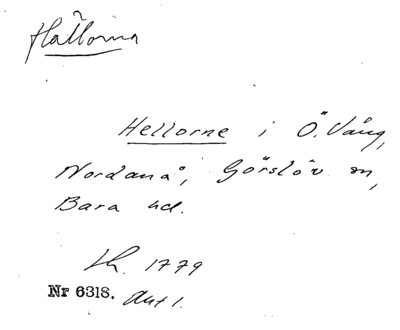 Hällorna
Hellorne i Ö. Vång,
Nordanå, Görslöv sn,
Bara hd.
Lh. 1779
Nr 6318. Akt 1.